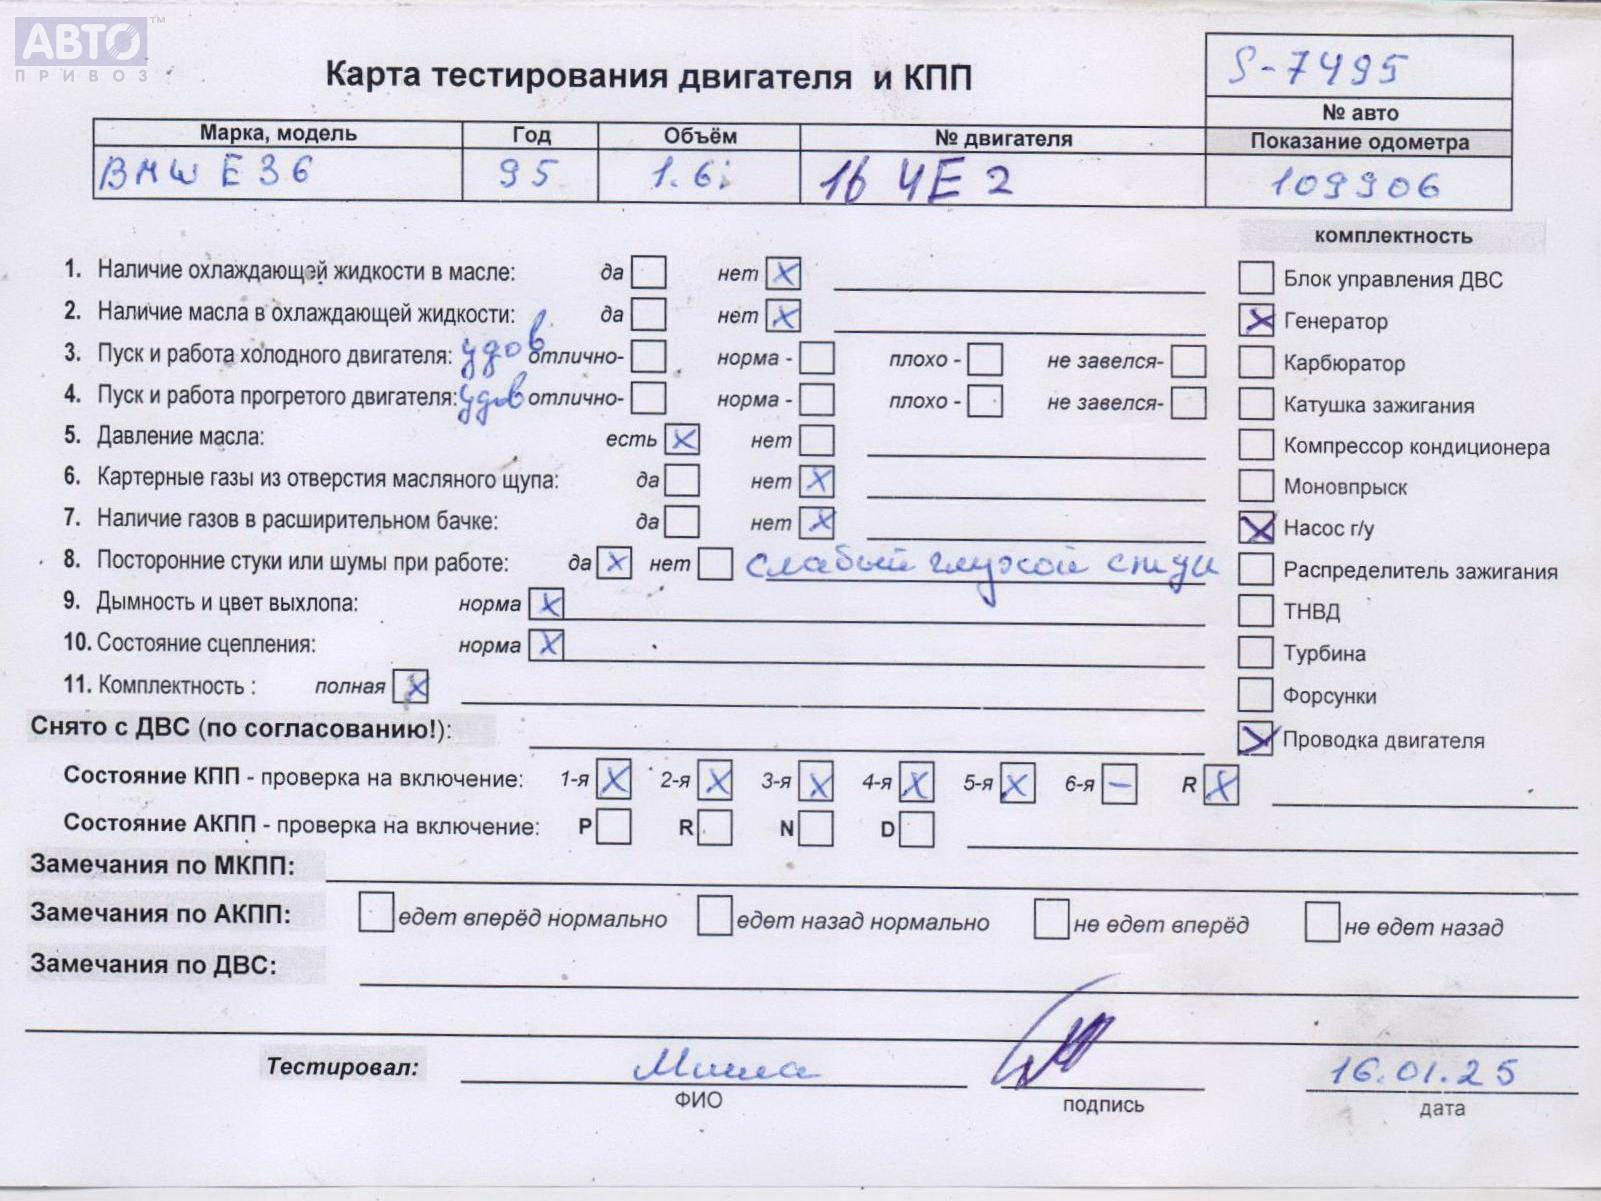 АВТО™
ПРИВОЗ
Карта тестирования двигателя и КПП
S-7495
№ авто
Марка, модель Год Объём № двигателя Показание одометра
BMW E36 95 1.6i 164E2 109906
комплектность
1. Наличие охлаждающей жидкости в масле: да нет X
Блок управления ДВС
2. Наличие масла в охлаждающей жидкости: да нет X
X Генератор
3. Пуск и работа холодного двигателя: удов отлично- норма - плохо - не завелся-
Карбюратор
4. Пуск и работа прогретого двигателя: удов отлично- норма - плохо - не завелся-
Катушка зажигания
5. Давление масла: есть X нет
Компрессор кондиционера
6. Картерные газы из отверстия масляного щупа: да нет X
Моновпрыск
7. Наличие газов в расширительном бачке: да нет X
X Насос г/у
8. Посторонние стуки или шумы при работе: да X нет слабый глухой стук
Распределитель зажигания
9. Дымность и цвет выхлопа: норма X
ТНВД
10. Состояние сцепления: норма X
Турбина
11. Комплектность : полная X
Форсунки
Снято с ДВС (по согласованию!):
X Проводка двигателя
Состояние КПП - проверка на включение: 1-я X 2-я X 3-я X 4-я X 5-я X 6-я – R X
Состояние АКПП - проверка на включение: P R N D
Замечания по МКПП:
Замечания по АКПП: едет вперёд нормально едет назад нормально не едет вперёд не едет назад
Замечания по ДВС:
Тестировал: Миша 16.01.25
ФИО подпись дата